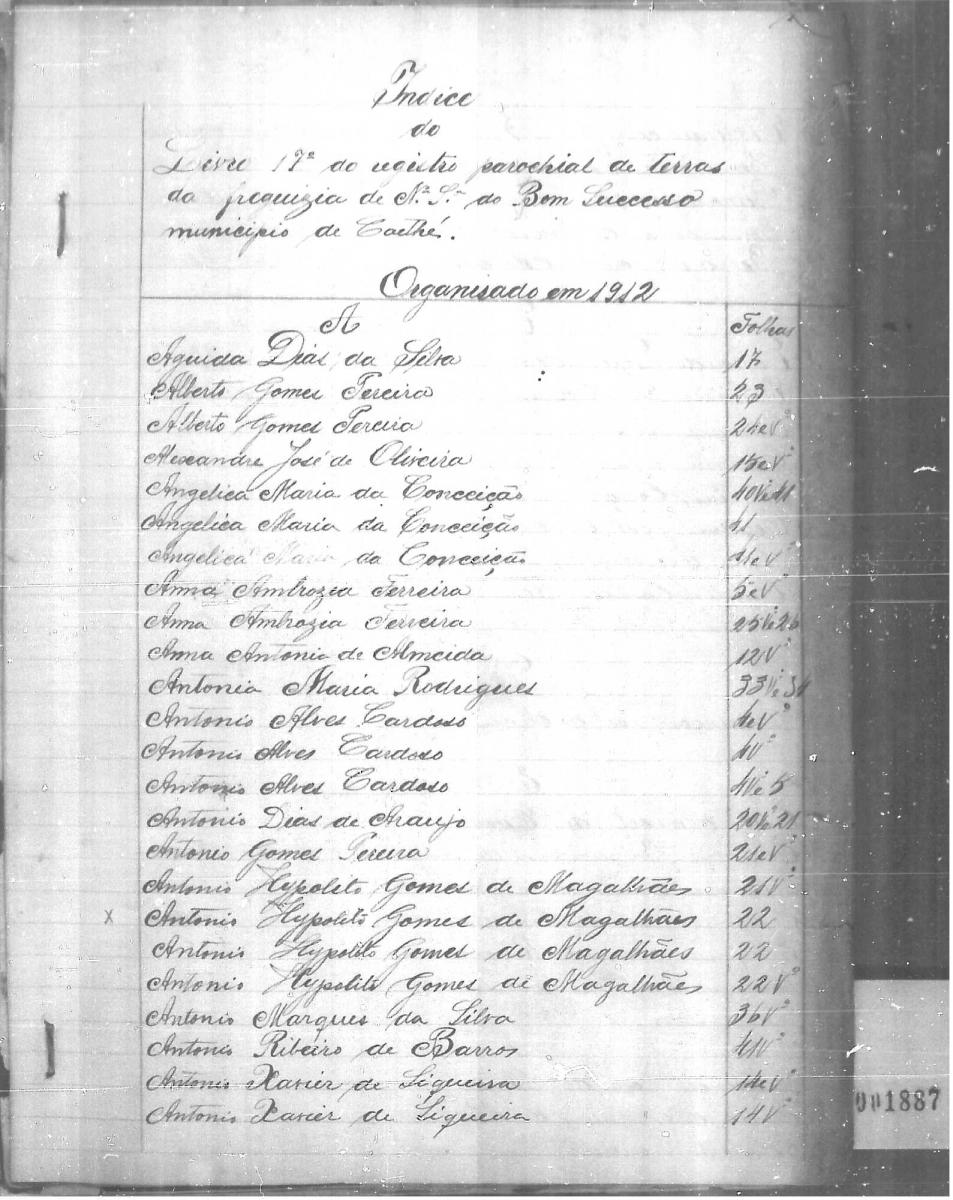 Indice
do
Livro 17º do registro parochial de terras
da freguizia de N.ª S.ª do Bom Successo
municipio de Caethé.
Organisado em 1912
A Folhas
Aguida Dias da Silva 17
Alberto Gomes Pereira 23
Alberto Gomes Pereira 24 e Vº
Alexandre José de Oliveira 15 e Vº
Angelica Maria da Conceição 40Vº e 41
Angelica Maria da Conceição 41
Angelica Maria da Conceição 41 e Vº
Anna Ambrozia Ferreira 5 e Vº
Anna Ambrozia Ferreira 25Vº e 26
Anna Antonia de Almeida 12Vº
Antonia Maria Rodrigues 33Vº e 34
Antonio Alves Cardoso 4 e Vº
Antonio Alves Cardoso 4Vº
Antonio Alves Cardoso 4Vº e 5
Antonio Dias de Araujo 20Vº e 21
Antonio Gomes Pereira 21 e Vº
Antonio Hypolito Gomes de Magalhães 21Vº
x Antonio Hypolito Gomes de Magalhães 22
Antonio Hypolito Gomes de Magalhães 22
Antonio Hypolito Gomes de Magalhães 22Vº
Antonio Marques da Silva 36Vº
Antonio Ribeiro de Barros 41Vº
Antonio Xavier de Siqueira 14 e Vº
Antonio Xavier de Siqueira 14Vº
001887